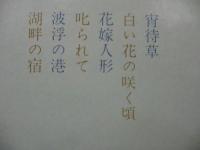 宵待草
白い花の咲く頃
花嫁人形
叱られて
波浮の港
湖畔の宿